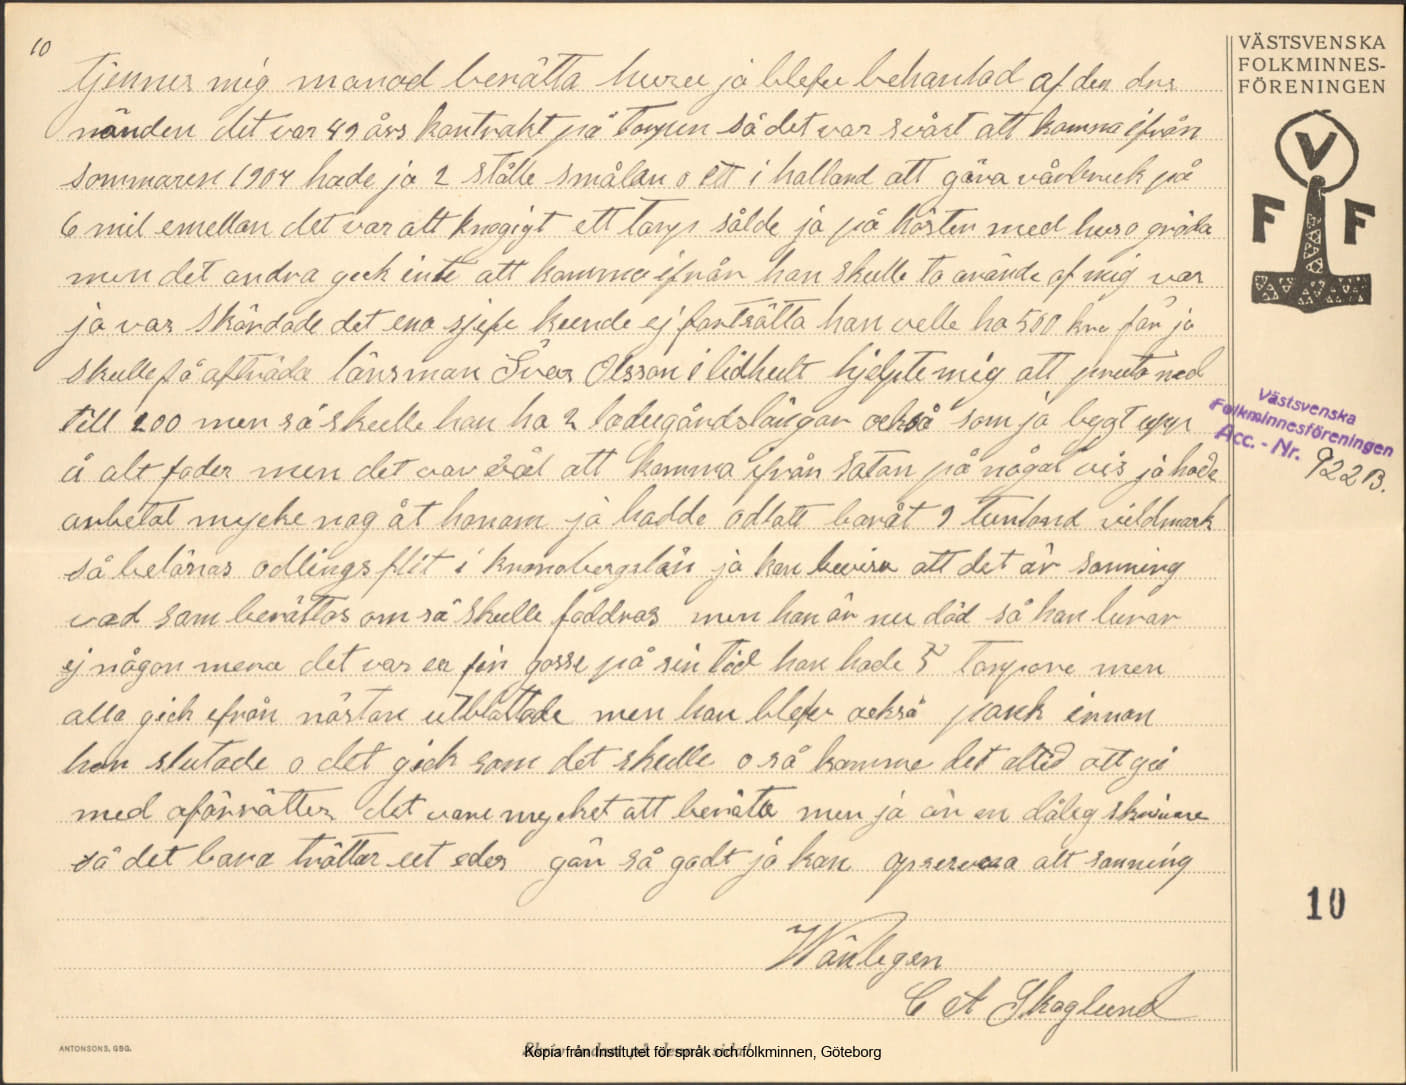 10
tjenner mig manad berätta huru ja blefv behanlad af den dns
nänden det var 49 års kantrakt på Torpen så det var svårt att komma ifrån
sommaren 1904 hade ja 2 ställe smålan o ett i halland att göra vårbruk på
6 mil emellan det var alt knogigt ett Torp sålde ja på hösten med hus o gröda
men det andra geck inte att komma ifrån han skulle ta arände af mig var
ja var Skördade det ena sjelv kunde ej fortsätta han velle ha 500 kro får ja
skulle få afträda länsman Ivar Olsson i lidhult hjelpte mig att pruta ned
till 200 men så skulle han ha 2 ladugårdslängar också som ja bygt upp
å alt foder men det var väl att komma ifrån satan på någat vis ja hade
arbetat mycke nog åt honom ja hadde odlatt baråt 9 tunland vildmark
så belönas odlingsflit i kronobergslän ja kan bevisa att det är sanning
vad som berättas om så skulle foddras men han är nu död så han lurar
ej någon mera det var en fin gosse på sin tid han hade 5 Torpare men
alla gick ifrån nästan utblottade men han blefv också pank innan
han slutade o det gick som det skulle o så komme det altid att gå
med oförrätter det vare mycket att beräta men ja är en dålig skrivare
så det bara tröttar eet eder gör så godt ja kan opserva alt sanning
Wänligen
C A Skoglund
VÄSTSVENSKA
FOLKMINNES-
FÖRENINGEN
V
F F
Västsvenska
Folkminnesföreningen
Acc. - Nr. 922 B.
10
ANTONSONS, GBG.
Kopia från Institutet för språk och folkminnen, Göteborg